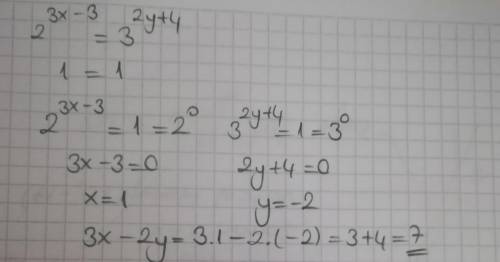 2^{3x-3} = 3^{2y+4}
1 = 1
2^{3x-3} = 1 = 2^0 3^{2y+4} = 1 = 3^0
3x-3=0 2y+4=0
x=1 y=-2
3x-2y=3.1-2.(-2)=3+4=7